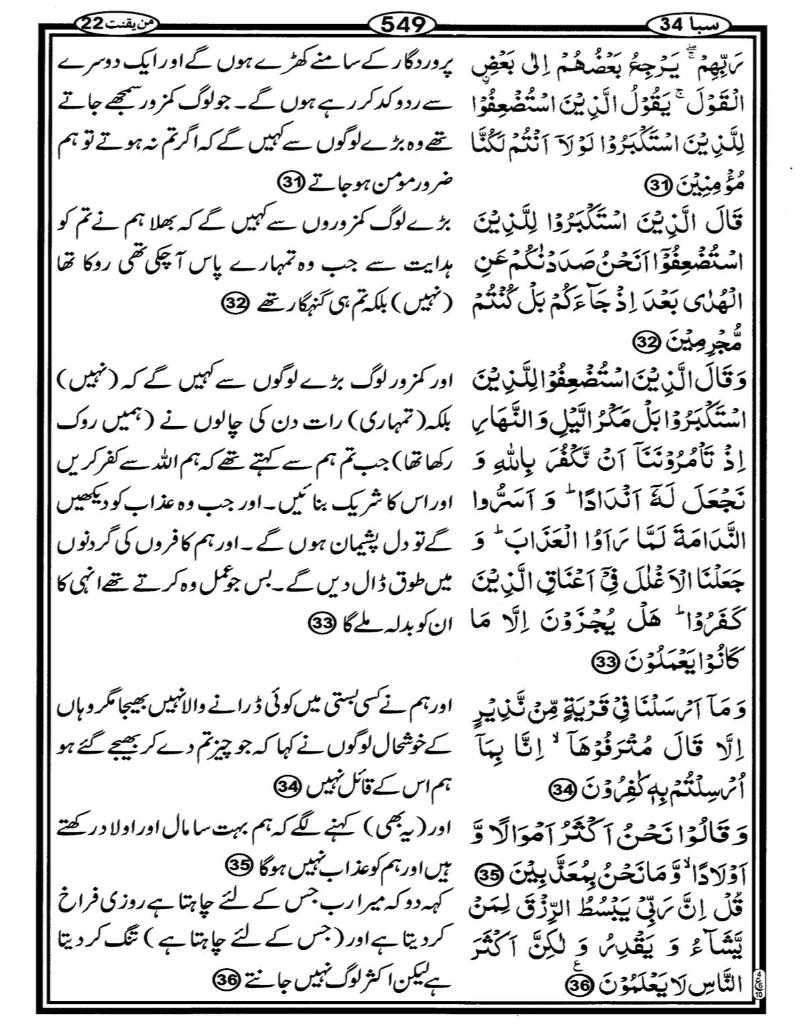 سبا 34
549
من یقنت 22
رَبِّهِمْ ۖۚ یَرْجِعُ بَعْضُهُمْ اِلٰی بَعْضِ
اۨلْقَوْلَ ۚ یَقُوْلُ الَّذِیْنَ اسْتُضْعِفُوْا
لِلَّذِیْنَ اسْتَكْبَرُوْا لَوْ لَاۤ اَنْتُمْ لَكُنَّا
مُؤْمِنِیْنَ 31
قَالَ الَّذِیْنَ اسْتَكْبَرُوْا لِلَّذِیْنَ
اسْتُضْعِفُوْۤا اَنَحْنُ صَدَدْنٰكُمْ عَنِ
الْهُدٰی بَعْدَ اِذْ جَآءَكُمْ بَلْ كُنْتُمْ
مُّجْرِمِیْنَ 32
وَ قَالَ الَّذِیْنَ اسْتُضْعِفُوْا لِلَّذِیْنَ
اسْتَكْبَرُوْا بَلْ مَكْرُ الَّیْلِ وَ النَّهَارِ
اِذْ تَاْمُرُوْنَنَاۤ اَنْ نَّكْفُرَ بِاللّٰهِ وَ
نَجْعَلَ لَهٗۤ اَنْدَادًا ؕ وَ اَسَرُّوا
النَّدَامَةَ لَمَّا رَاَوُا الْعَذَابَ ؕ وَ
جَعَلْنَا الْاَغْلٰلَ فِیْۤ اَعْنَاقِ الَّذِیْنَ
كَفَرُوْا ؕ هَلْ یُجْزَوْنَ اِلَّا مَا
كَانُوْا یَعْمَلُوْنَ 33
وَ مَاۤ اَرْسَلْنَا فِیْ قَرْیَةٍ مِّنْ نَّذِیْرٍ
اِلَّا قَالَ مُتْرَفُوْهَاۤ ۙ اِنَّا بِمَاۤ
اُرْسِلْتُمْ بِهٖ كٰفِرُوْنَ 34
وَ قَالُوْا نَحْنُ اَكْثَرُ اَمْوَالًا وَّ
اَوْلَادًا ۙ وَّ مَا نَحْنُ بِمُعَذَّبِیْنَ 35
قُلْ اِنَّ رَبِّیْ یَبْسُطُ الرِّزْقَ لِمَنْ
یَّشَآءُ وَ یَقْدِرُ وَ لٰكِنَّ اَكْثَرَ
النَّاسِ لَا یَعْلَمُوْنَ 36
پروردگار کے سامنے کھڑے ہوں گے اور ایک دوسرے
سے ردوکد کر رہے ہوں گے۔ جو لوگ کمزور سمجھے جاتے
تھے وہ بڑے لوگوں سے کہیں گے کہ اگر تم نہ ہوتے تو ہم
ضرور مومن ہو جاتے 31
بڑے لوگ کمزوروں سے کہیں گے کہ بھلا ہم نے تم کو
ہدایت سے جب وہ تمہارے پاس آ چکی تھی روکا تھا
(نہیں) بلکہ تم ہی گنہگار تھے 32
اور کمزور لوگ بڑے لوگوں سے کہیں گے کہ (نہیں)
بلکہ (تمہاری) رات دن کی چالوں نے (ہمیں روک
رکھا تھا) جب تم ہم سے کہتے تھے کہ ہم اللہ سے کفر کریں
اور اس کا شریک بنائیں۔ اور جب وہ عذاب کو دیکھیں
گے تو دل پشیمان ہوں گے۔ اور ہم کافروں کی گردنوں
میں طوق ڈال دیں گے۔ بس جو عمل وہ کرتے تھے انہی کا
ان کو بدلہ ملے گا 33
اور ہم نے کسی بستی میں کوئی ڈرانے والا نہیں بھیجا مگر وہاں
کے خوشحال لوگوں نے کہا کہ جو چیز تم دے کر بھیجے گئے ہو
ہم اس کے قائل نہیں 34
اور (یہ بھی) کہنے لگے کہ ہم بہت سا مال اور اولاد رکھتے
ہیں اور ہم کو عذاب نہیں ہوگا 35
کہہ دو کہ میرا رب جس کے لئے چاہتا ہے روزی فراخ
کر دیتا ہے اور (جس کے لئے چاہتا ہے) تنگ کر دیتا
ہے لیکن اکثر لوگ نہیں جانتے 36